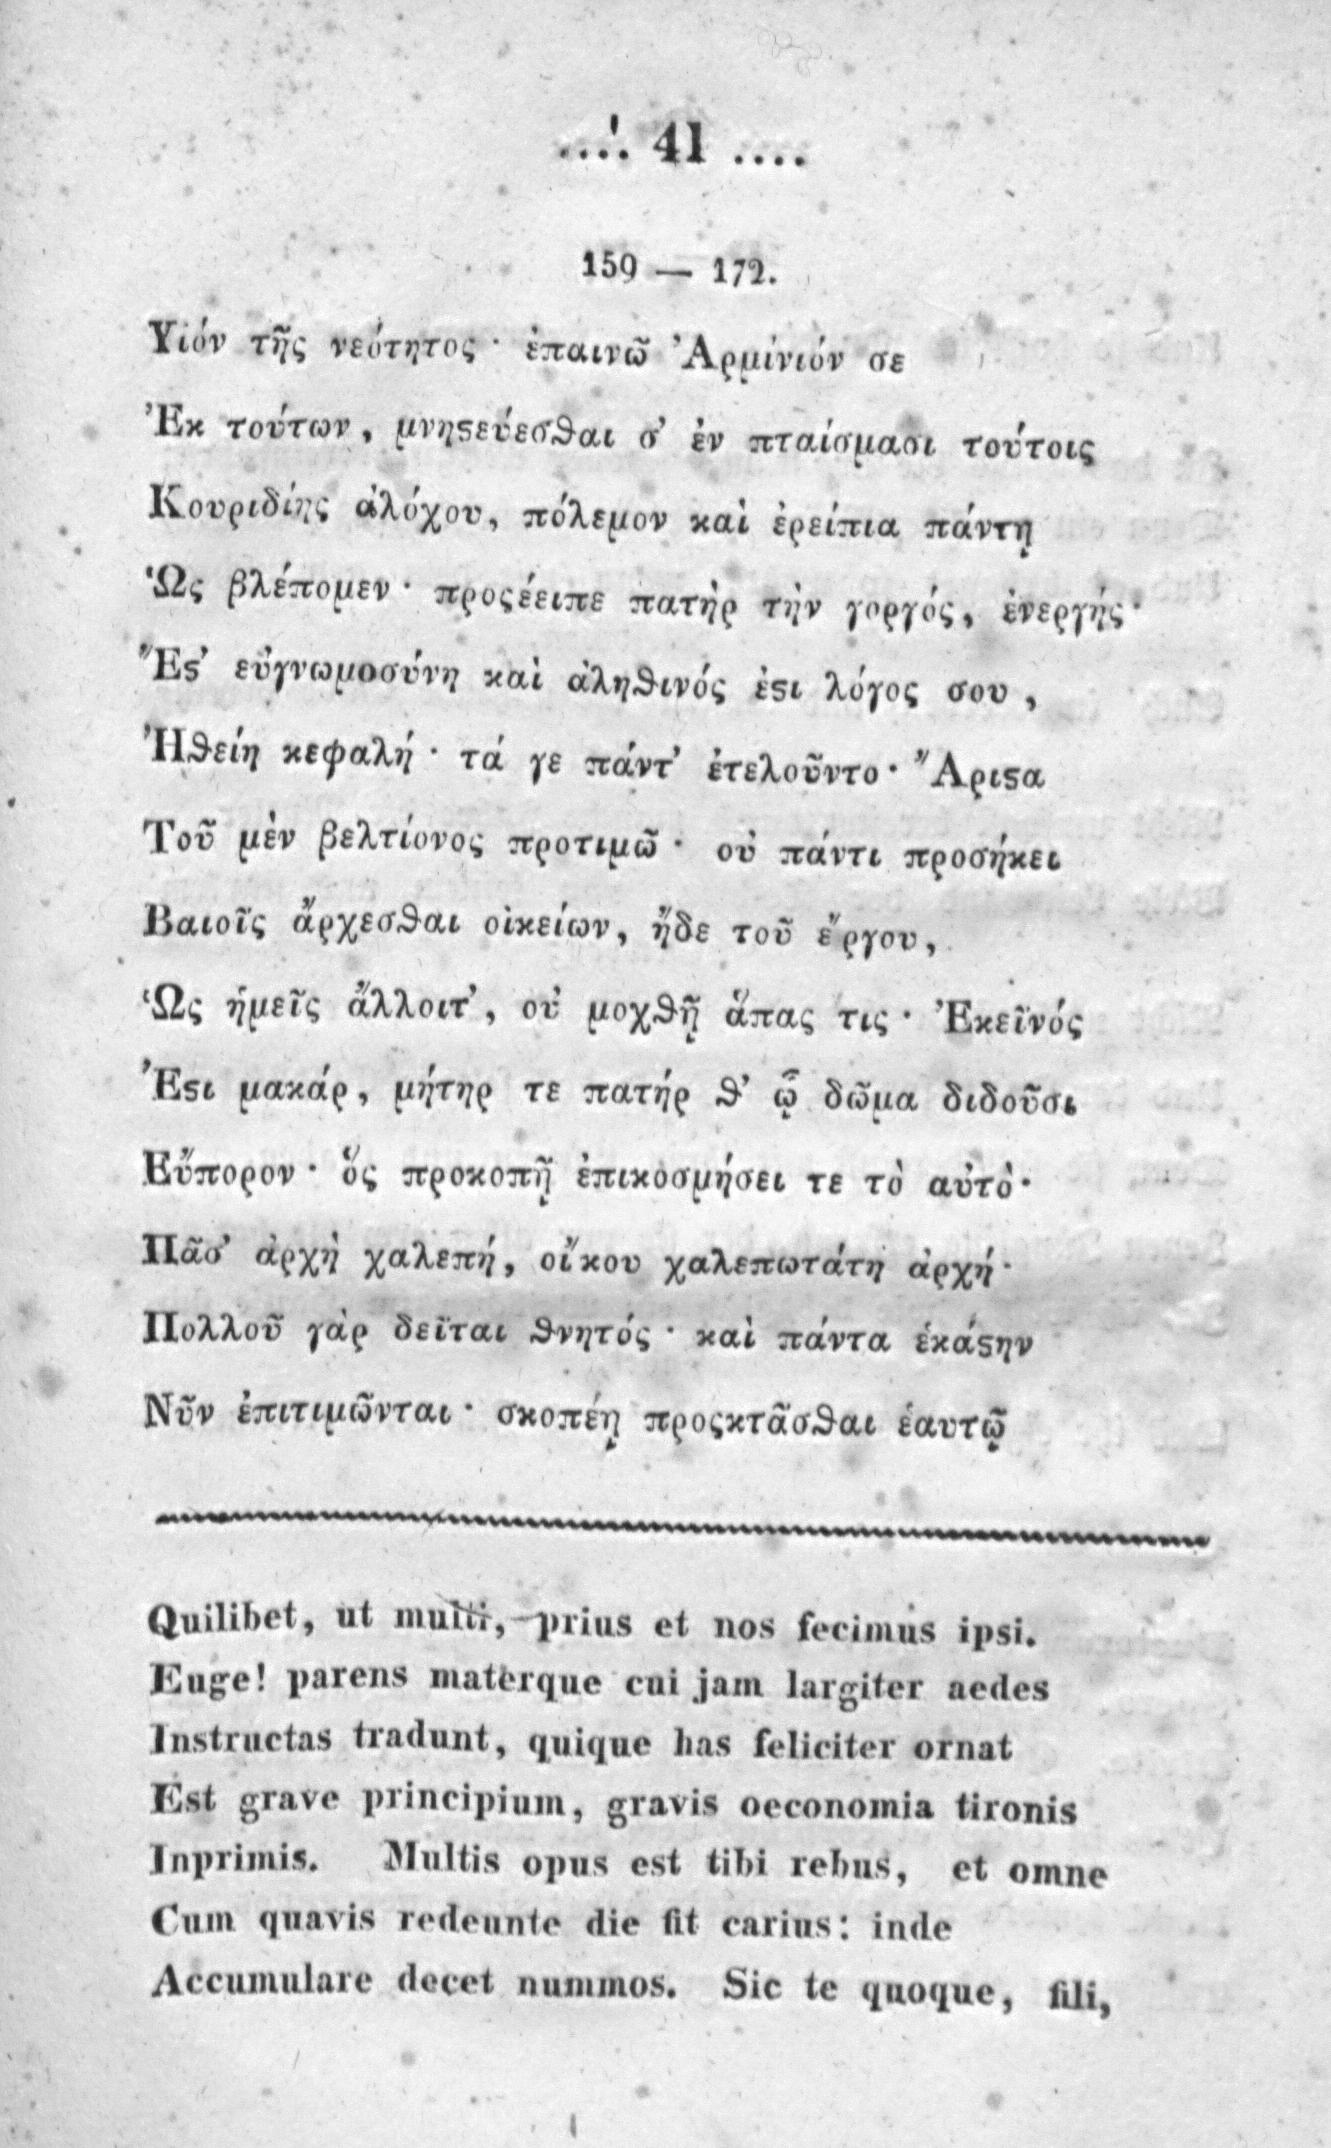 .... 41 ....
159 — 172.
Υἱόν τῆς νεότητος · ἐπαινῶ Ἀρμίνιόν σε
Ἐκ τούτων, μνηϛεύεσϑαι σ' ἐν πταίσμασι τούτοις
Κουριδίης ἀλόχου, πόλεμον καὶ ἐρείπια πάντῃ
Ὡς βλέπομεν · προςέειπε πατὴρ τὴν γοργός, ἐνεργής·
Ἔϛ' εὐγνωμοσύνη καὶ ἀληϑινός ἐϛι λόγος σου,
Ἠϑείη κεφαλή · τά γε πάντ' ἐτελοῦντο· Ἄριϛα
Τοῦ μὲν βελτίονος προτιμῶ · οὐ πάντι προσήκει
Βαιοῖς ἄρχεσϑαι οἰκείων, ἤδε τοῦ ἔργου,
Ὡς ἡμεῖς ἄλλοιτ', οὐ μοχϑῇ ἅπας τις · Ἐκεῖνός
Ἐϛι μακάρ, μήτηρ τε πατήρ ϑ' ᾧ δῶμα διδοῦσι
Εὔπορον · ὅς προκοπῇ ἐπικοσμήσει τε τὸ αὐτὸ·
Πᾶσ' ἀρχὴ χαλεπή, οἴκου χαλεπωτάτη ἀρχή·
Πολλοῦ γὰρ δεῖται ϑνητός · καὶ πάντα ἑκάϛην
Νῦν ἐπιτιμῶνται · σκοπέῃ προςκτᾶσϑαι ἑαυτῷ
Quilibet, ut multi, prius et nos fecimus ipsi.
Euge! parens materque cui jam largiter aedes
Instructas tradunt, quique has feliciter ornat
Est grave principium, gravis oeconomia tironis
Inprimis. Multis opus est tibi rebus, et omne
Cum quavis redeunte die fit carius: inde
Accumulare decet nummos. Sic te quoque, fili,